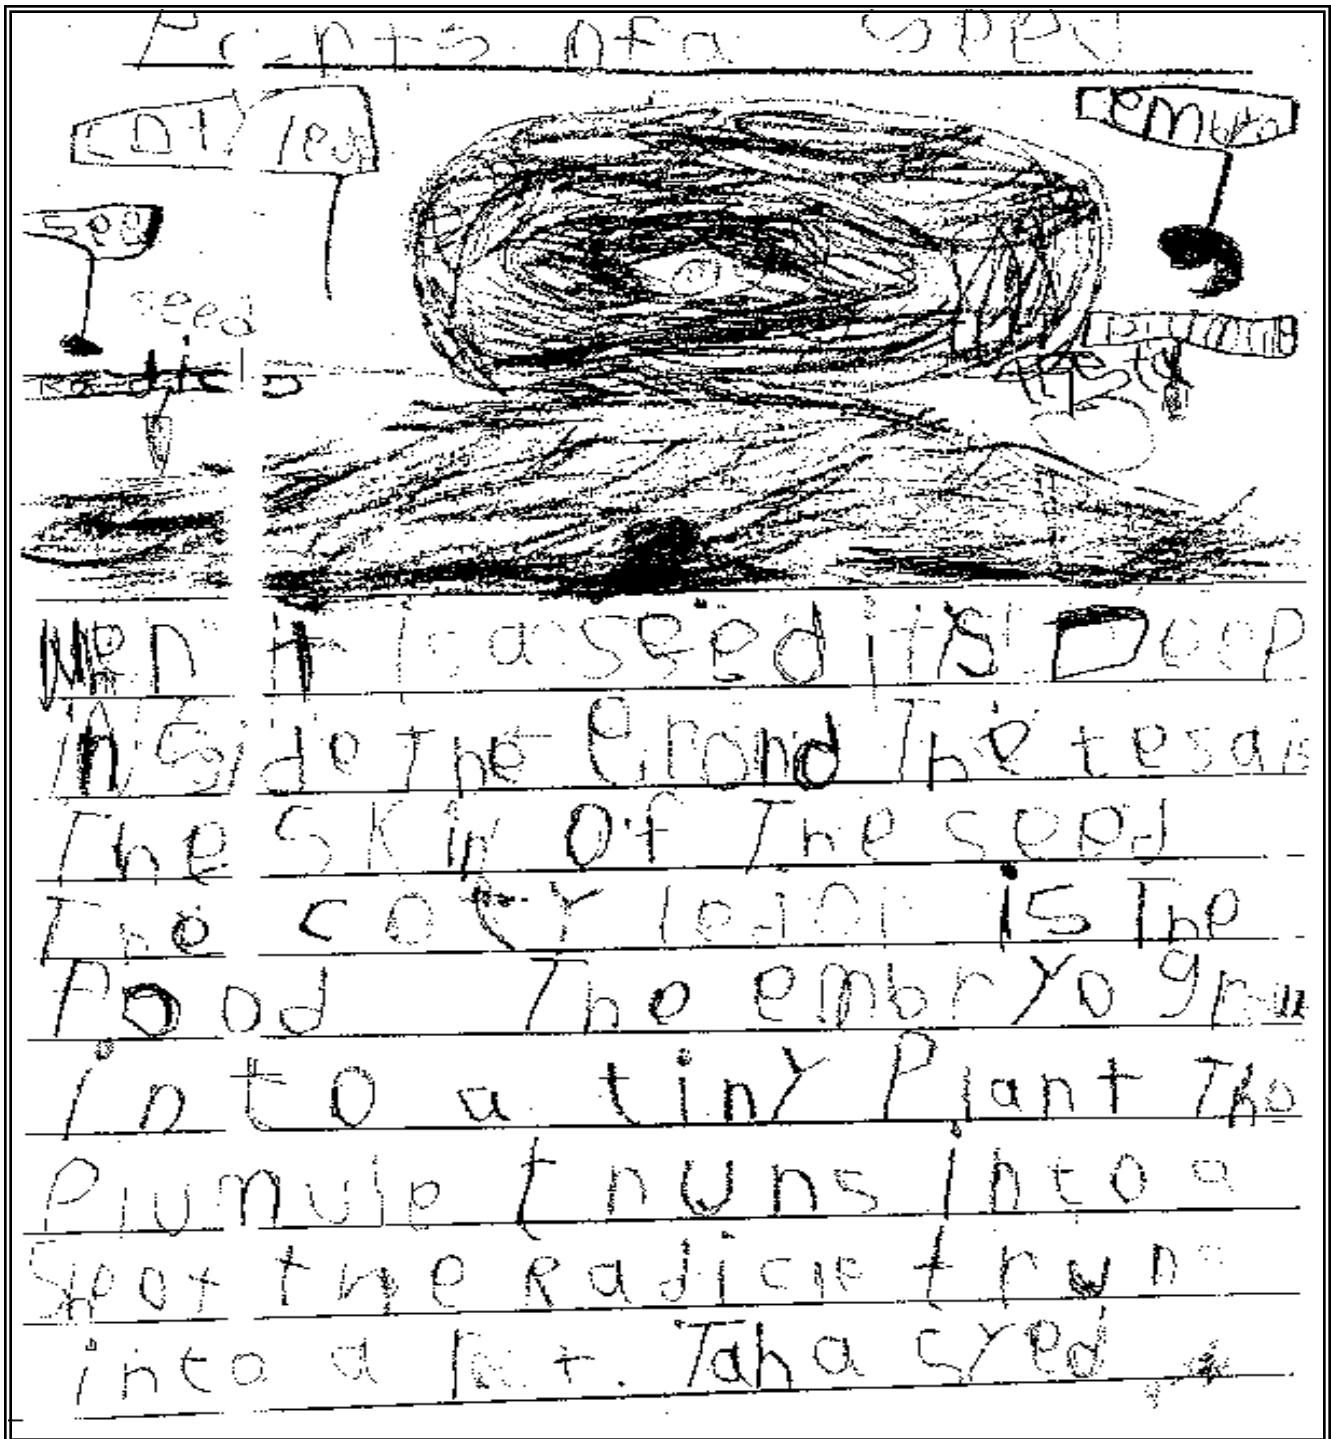 Prints of a seed
cotyleg
emyro
seed
seed
Radicle
plumule
Testa
When it is a seed it's Deep
inside the Grond The tesa is
The skin of The seed
The cotyledon is The
Food The embryo grow
into a tiny Plant The
Plumule truns into a
Shoot the Radicle trun
into a Rot. Taha Syed